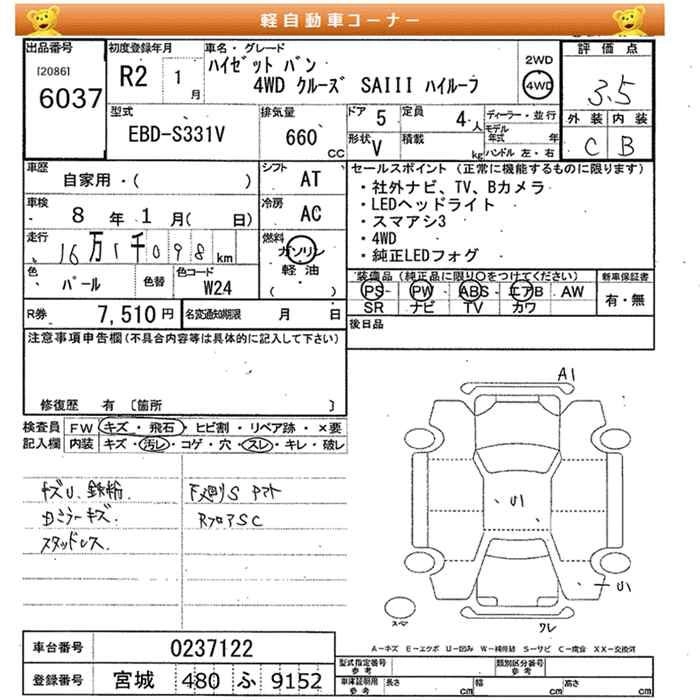 軽自動車コーナー
出品番号
[2086]
6037
初度登録年月
R2 1月
車名・グレード
ハイゼット バン
4WD クルーズ SAIII ハイルーフ
2WD
4WD
評価点
3.5
外装 内装
C B
型式
EBD-S331V
排気量
660 CC
ドア 5
定員 4人
ディーラー・並行
モデル年式 年
形状 V
積載 kg
ハンドル 左・右
車歴
自家用・( )
シフト AT
車検
8年 1月( 日)
冷房 AC
走行
16万1千098km
燃料
ガソリン
軽油
( )
色 パール
色替
色コード W24
R券 7,510円
名変通知期限 月 日
セールスポイント (正常に機能するものに限ります)
・社外ナビ、TV、Bカメラ
・LEDヘッドライト
・スマアシ3
・4WD
・純正LEDフォグ
装備品 (純正品に限り○をつけてください)
PS PW ABS エアB AW
SR ナビ TV カワ
新車保証書
有・無
後日品
注意事項申告欄(不具合内容等は具体的に記入して下さい)
修復歴 有 〔箇所 〕
検査員記入欄
FW キズ・飛石・ヒビ割・リペア跡・×要
内装 キズ・汚レ・コゲ・穴・スレ・キレ・破レ
キズU.鉄粉
ミラーキズ.
スタッドレス.
F廻りS
RフロアSC
A1
U1
U1
ワレ
スマ
A−キズ E−エクボ U−凹み W−補修跡 S−サビ C−腐食 XX−交換済
車台番号 0237122
登録番号 宮城 480 ふ 9152
型式指定番号 参考
類別区分番号 参考
車庫証明用 参考
長さ cm 幅 cm 高さ cm